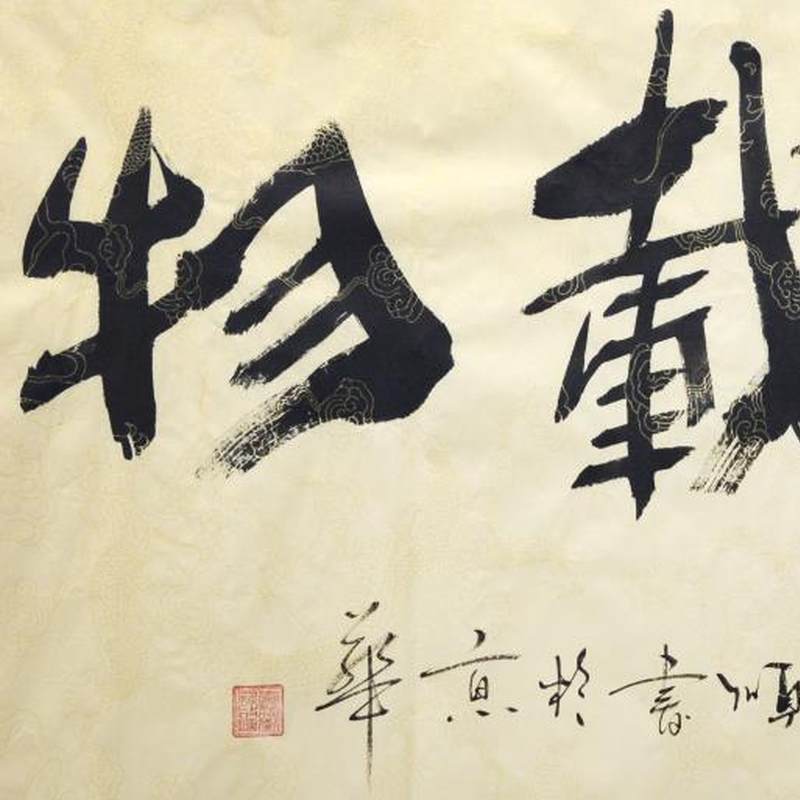 載物
書於京華